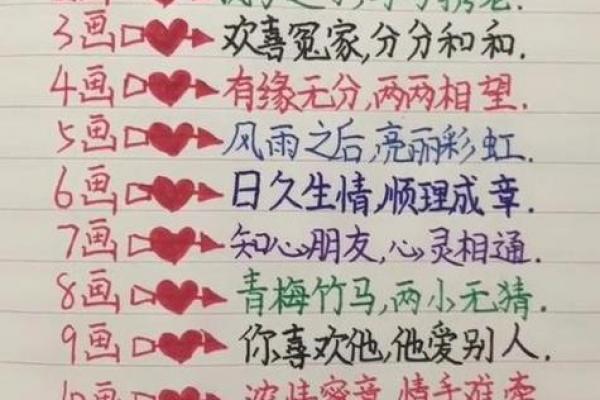 3画 欢喜冤家,分分和和.
4画 有缘无分,两两相望.
5画 风雨之后,亮丽彩虹.
6画 日久生情,顺理成章.
7画 知心朋友,心灵相通.
8画 青梅竹马,两小无猜.
9画 你喜欢他,他爱别人.
10画 浓情蜜意,情手难牵